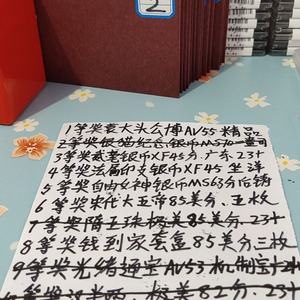 2
1等奖袁大头公博AU55精品
2等奖银猫纪念银币MS70一盎司
3等奖咸丰银币XF45分.广东.23+
4等奖法属印支银币XF45坐洋
5等奖自由女神银币MS63分后铸
6等奖宋代大五帝85美分.五枚
7等奖隋五珠极美85分.23+
8等奖钱到家套盒85美分三枚
9等奖光绪通宝AU53机制宝+2枚
极美82分.23+